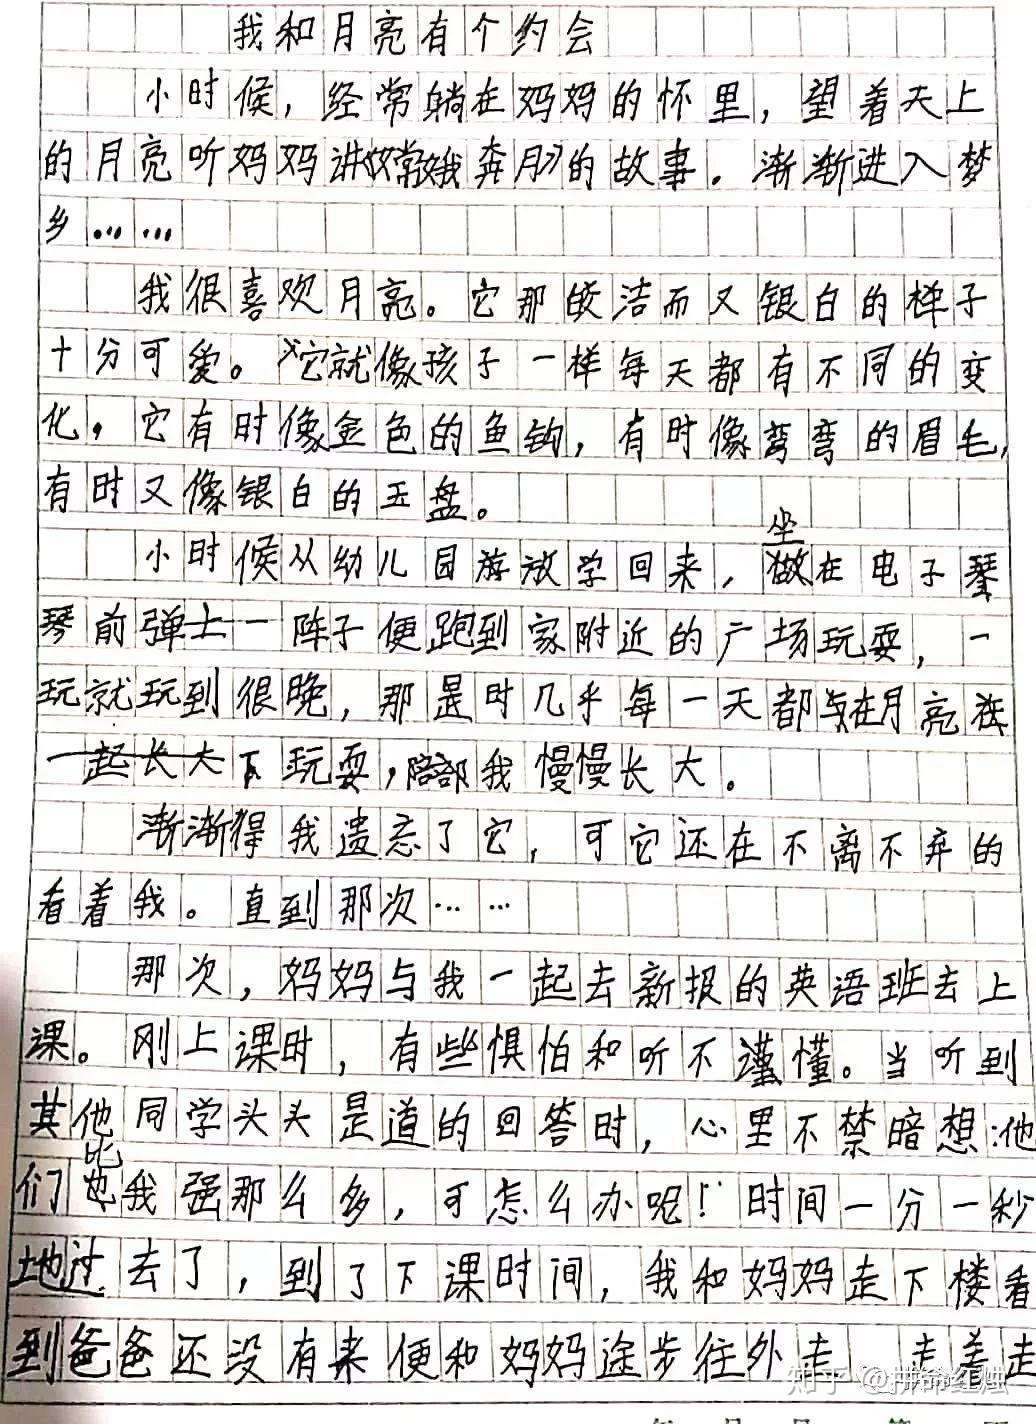 我和月亮有个约会
小时候，经常躺在妈妈的怀里，望着天上
的月亮听妈妈讲《嫦娥奔月》的故事。渐渐进入梦
乡……
我很喜欢月亮。它那皎洁而又银白的样子
十分可爱。它就像孩子一样每天都有不同的变
化，它有时像金色的鱼钩，有时像弯弯的眉毛，
有时又像银白的玉盘。
小时候从幼儿园放学回来，坐在电子琴
琴前弹上一阵子便跑到家附近的广场玩耍，一
玩就玩到很晚，那是时几乎每一天都在月亮
一起长大下玩耍，陪我慢慢长大。
渐渐得我遗忘了它，可它还在不离不弃的
看着我。直到那次……
那次，妈妈与我一起去新报的英语班去上
课。刚上课时，有些惧怕和听不懂。当听到
其他同学头头是道的回答时，心里不禁暗想：他
们比我强那么多，可怎么办呢！时间一分一秒
地过去了，到了下课时间，我和妈妈走下楼看
到爸爸还没有来便和妈妈途步往外走 走着走
知乎 @拼命红烛